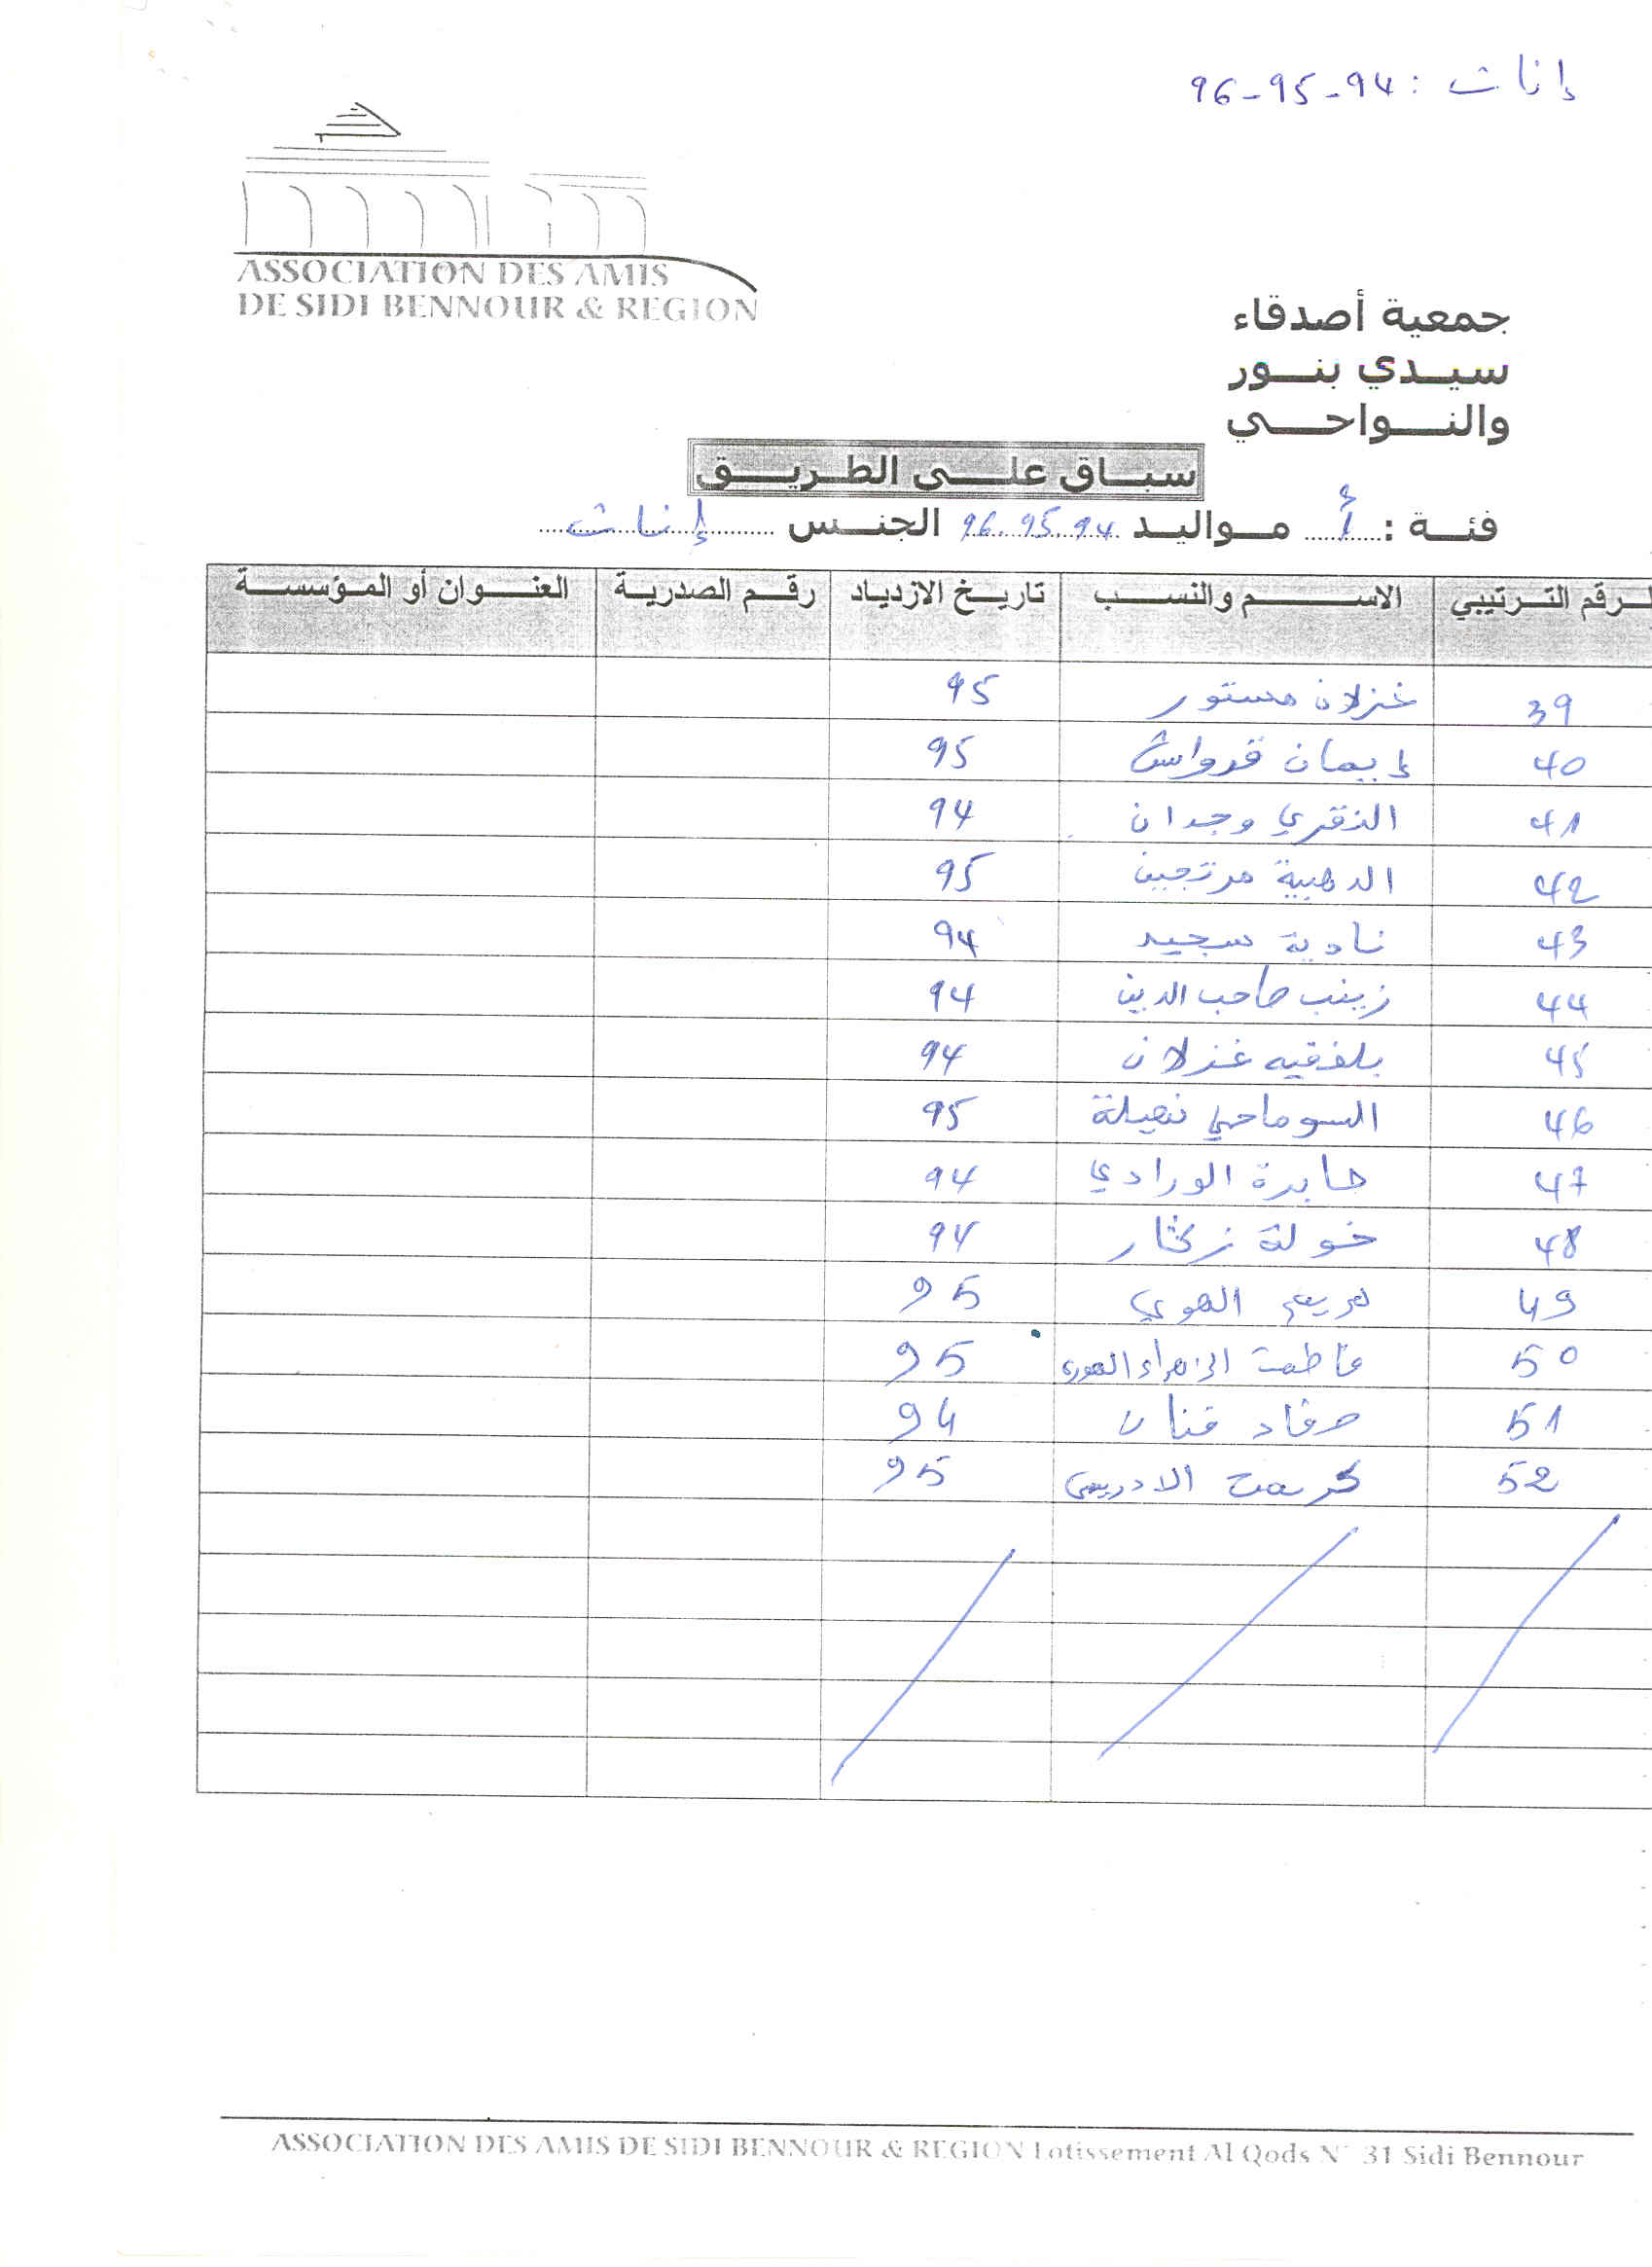 إناث : 94-95-96
ASSOCIATION DES AMIS
DE SIDI BENNOUR & REGION
جمعية أصدقاء
سيدي بنور
والنواحي
سباق على الطريق
فئة : أ مواليد 94.95.96 الجنس إناث
الرقم الترتيبي الاسم والنسب تاريخ الازدياد رقم الصدرية العنوان أو المؤسسة
39 غزلان مستور 95
40 إيمان قرواش 95
41 وجدان 94
42 الدهبية 95
43 نادية سجيد 94
44 زينب صاحب الدين 94
45 بلفقيه غزلان 94
46 السوماحي نهيلة 95
47 صابرة الورادي 94
48 خولة 94
49 مريم الهوي 95
50 فاطمة الزهراء 95
51 فنان 94
52 كريمة الادريسي 95
ASSOCIATION DES AMIS DE SIDI BENNOUR & REGION Lotissement Al Qods N° 31 Sidi Bennour